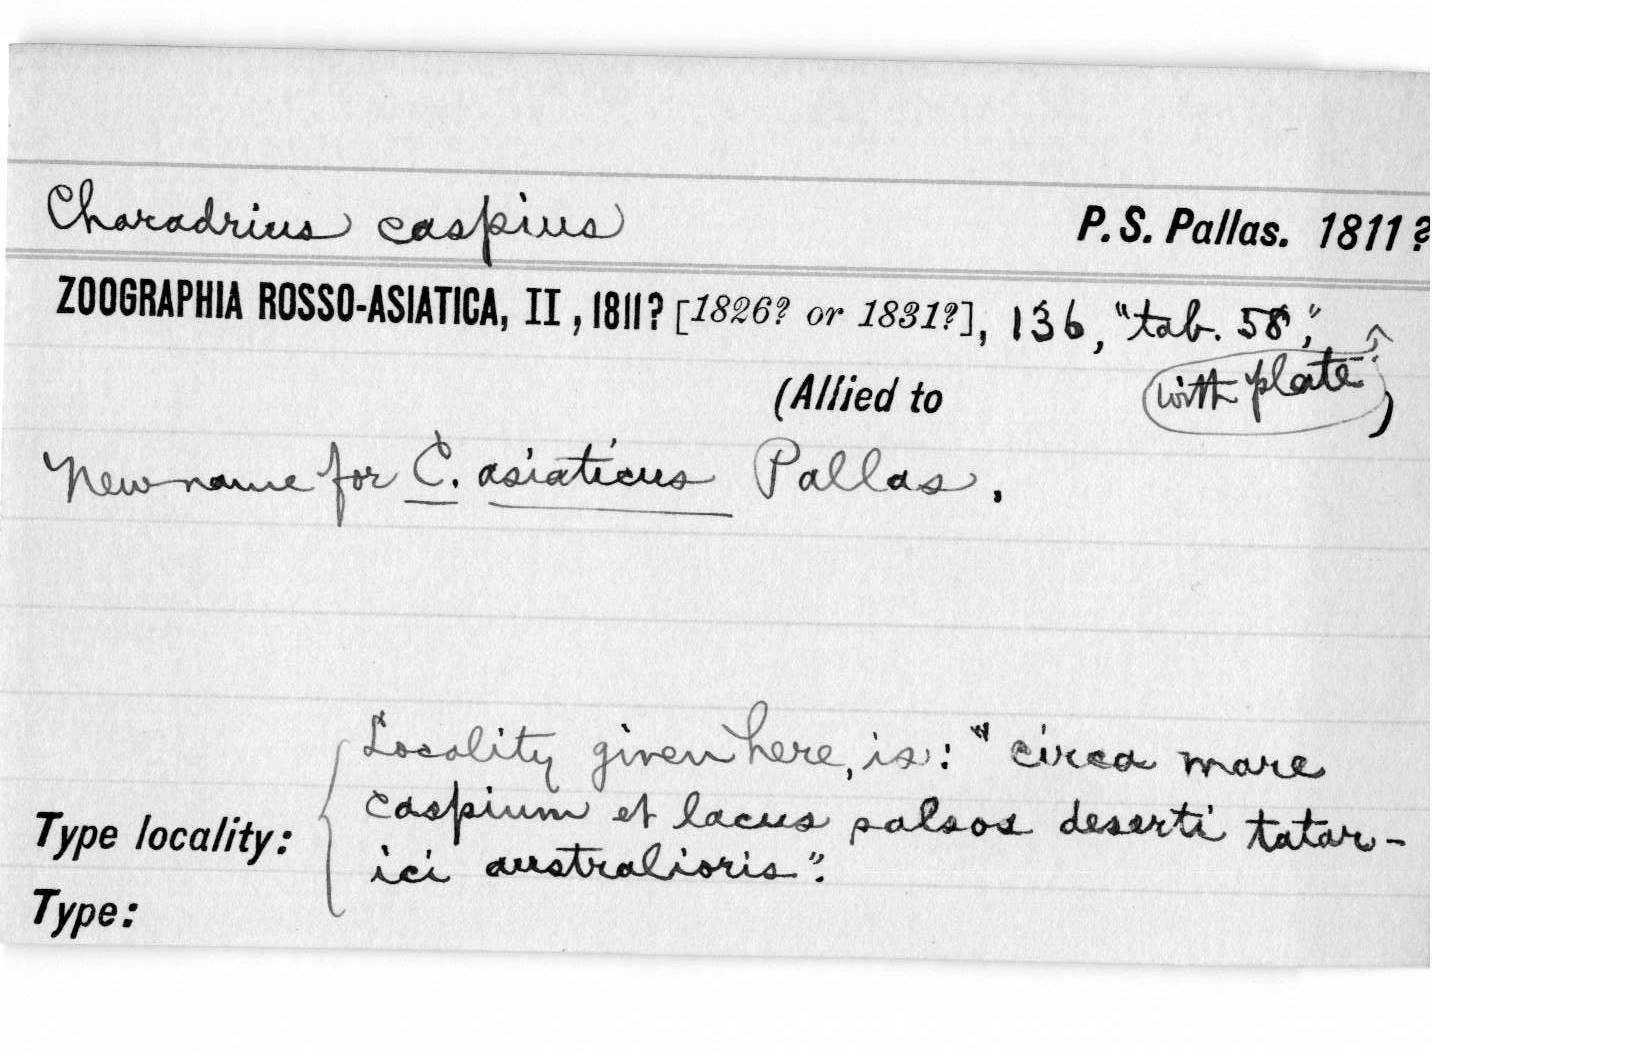 Charadrius caspius P. S. Pallas. 1811?
ZOOGRAPHIA ROSSO-ASIATICA, II, 1811? [1826? or 1831?], 136, "tab. 58",
(Allied to with plate )
New name for C. asiaticus Pallas.
Locality given here, is: "circa mare
caspium et lacus salsos deserti tatar-
Type locality:
ici australioris".
Type: